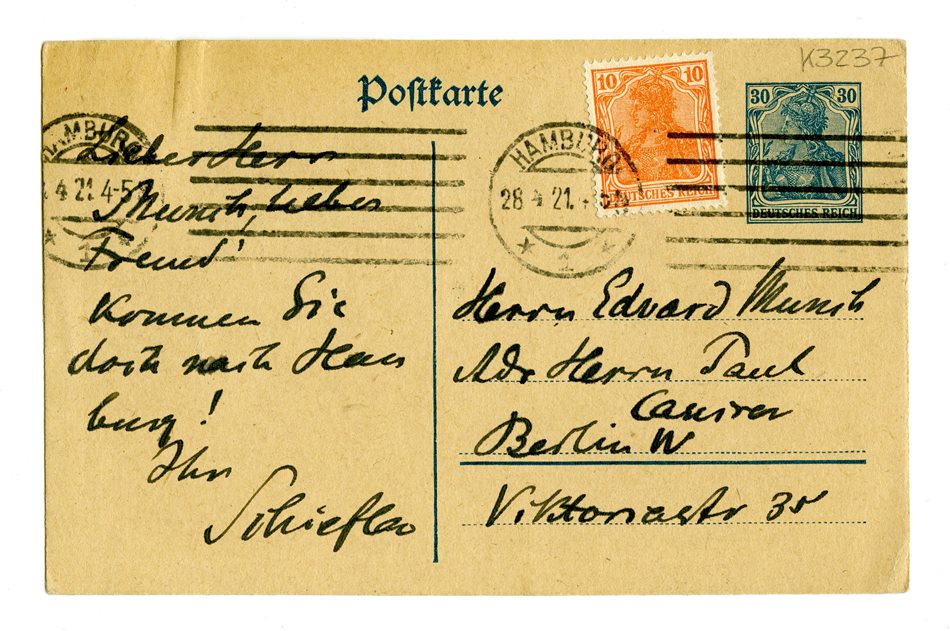 K3237
Postkarte
10 10
DEUTSCHES REICH
30 30
DEUTSCHES REICH
HAMBURG
4 21. 4-5
1
HAMBURG
28 4 21. 4-5 N
1
Lieber Herr
Munch, lieber
Freund!
Kommen Sie
doch nach Ham
burg!
Ihr
Schiefler
Herrn Edvard Munch
Adr Herrn Paul
Cassirer
Berlin W
Viktoriastr 35